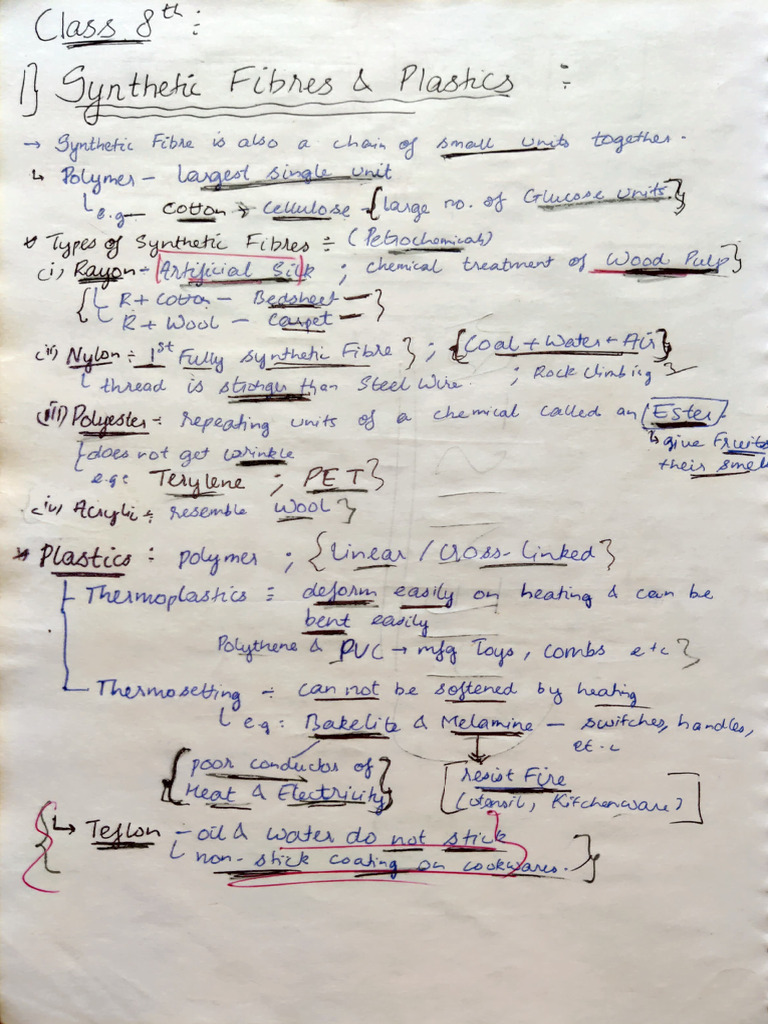 Class 8th :
1} Synthetic Fibres & Plastics :
→ Synthetic Fibre is also a chain of small units together.
↳ Polymer - largest single unit
e.g - Cotton → Cellulose - {large no. of Glucose units}
* Types of Synthetic Fibres ÷ (Petrochemicals)
(i) Rayon - Artificial Silk ; chemical treatment of Wood Pulp}
{ R + Cotton - Bedsheet -
R + Wool - Carpet - }
(ii) Nylon ÷ 1st Fully synthetic Fibre } ; {Coal + Water + Air}
thread is stronger than Steel Wire. ; Rock Climbing
(iii) Polyester ÷ repeating units of a chemical called an Ester.
↳ give Fruits their smell
{does not get wrinkle
e.g: Terylene ; PET}
(iv) Acrylic ÷ resemble Wool }
* Plastics ÷ polymer ; {Linear / Cross-Linked}
Thermoplastics ÷ deform easily on heating & can be
bent easily
Polythene & PVC → mfg Toys, combs etc}
Thermosetting ÷ can not be softened by heating
e.g: Bakelite & Melamine - switches, handles,
et.c
{poor conductor of
Heat & Electricity}
[resist Fire
(utensil, Kitchenware)]
{↳ Teflon - oil & water do not stick
non-stick coating on cookwares.}